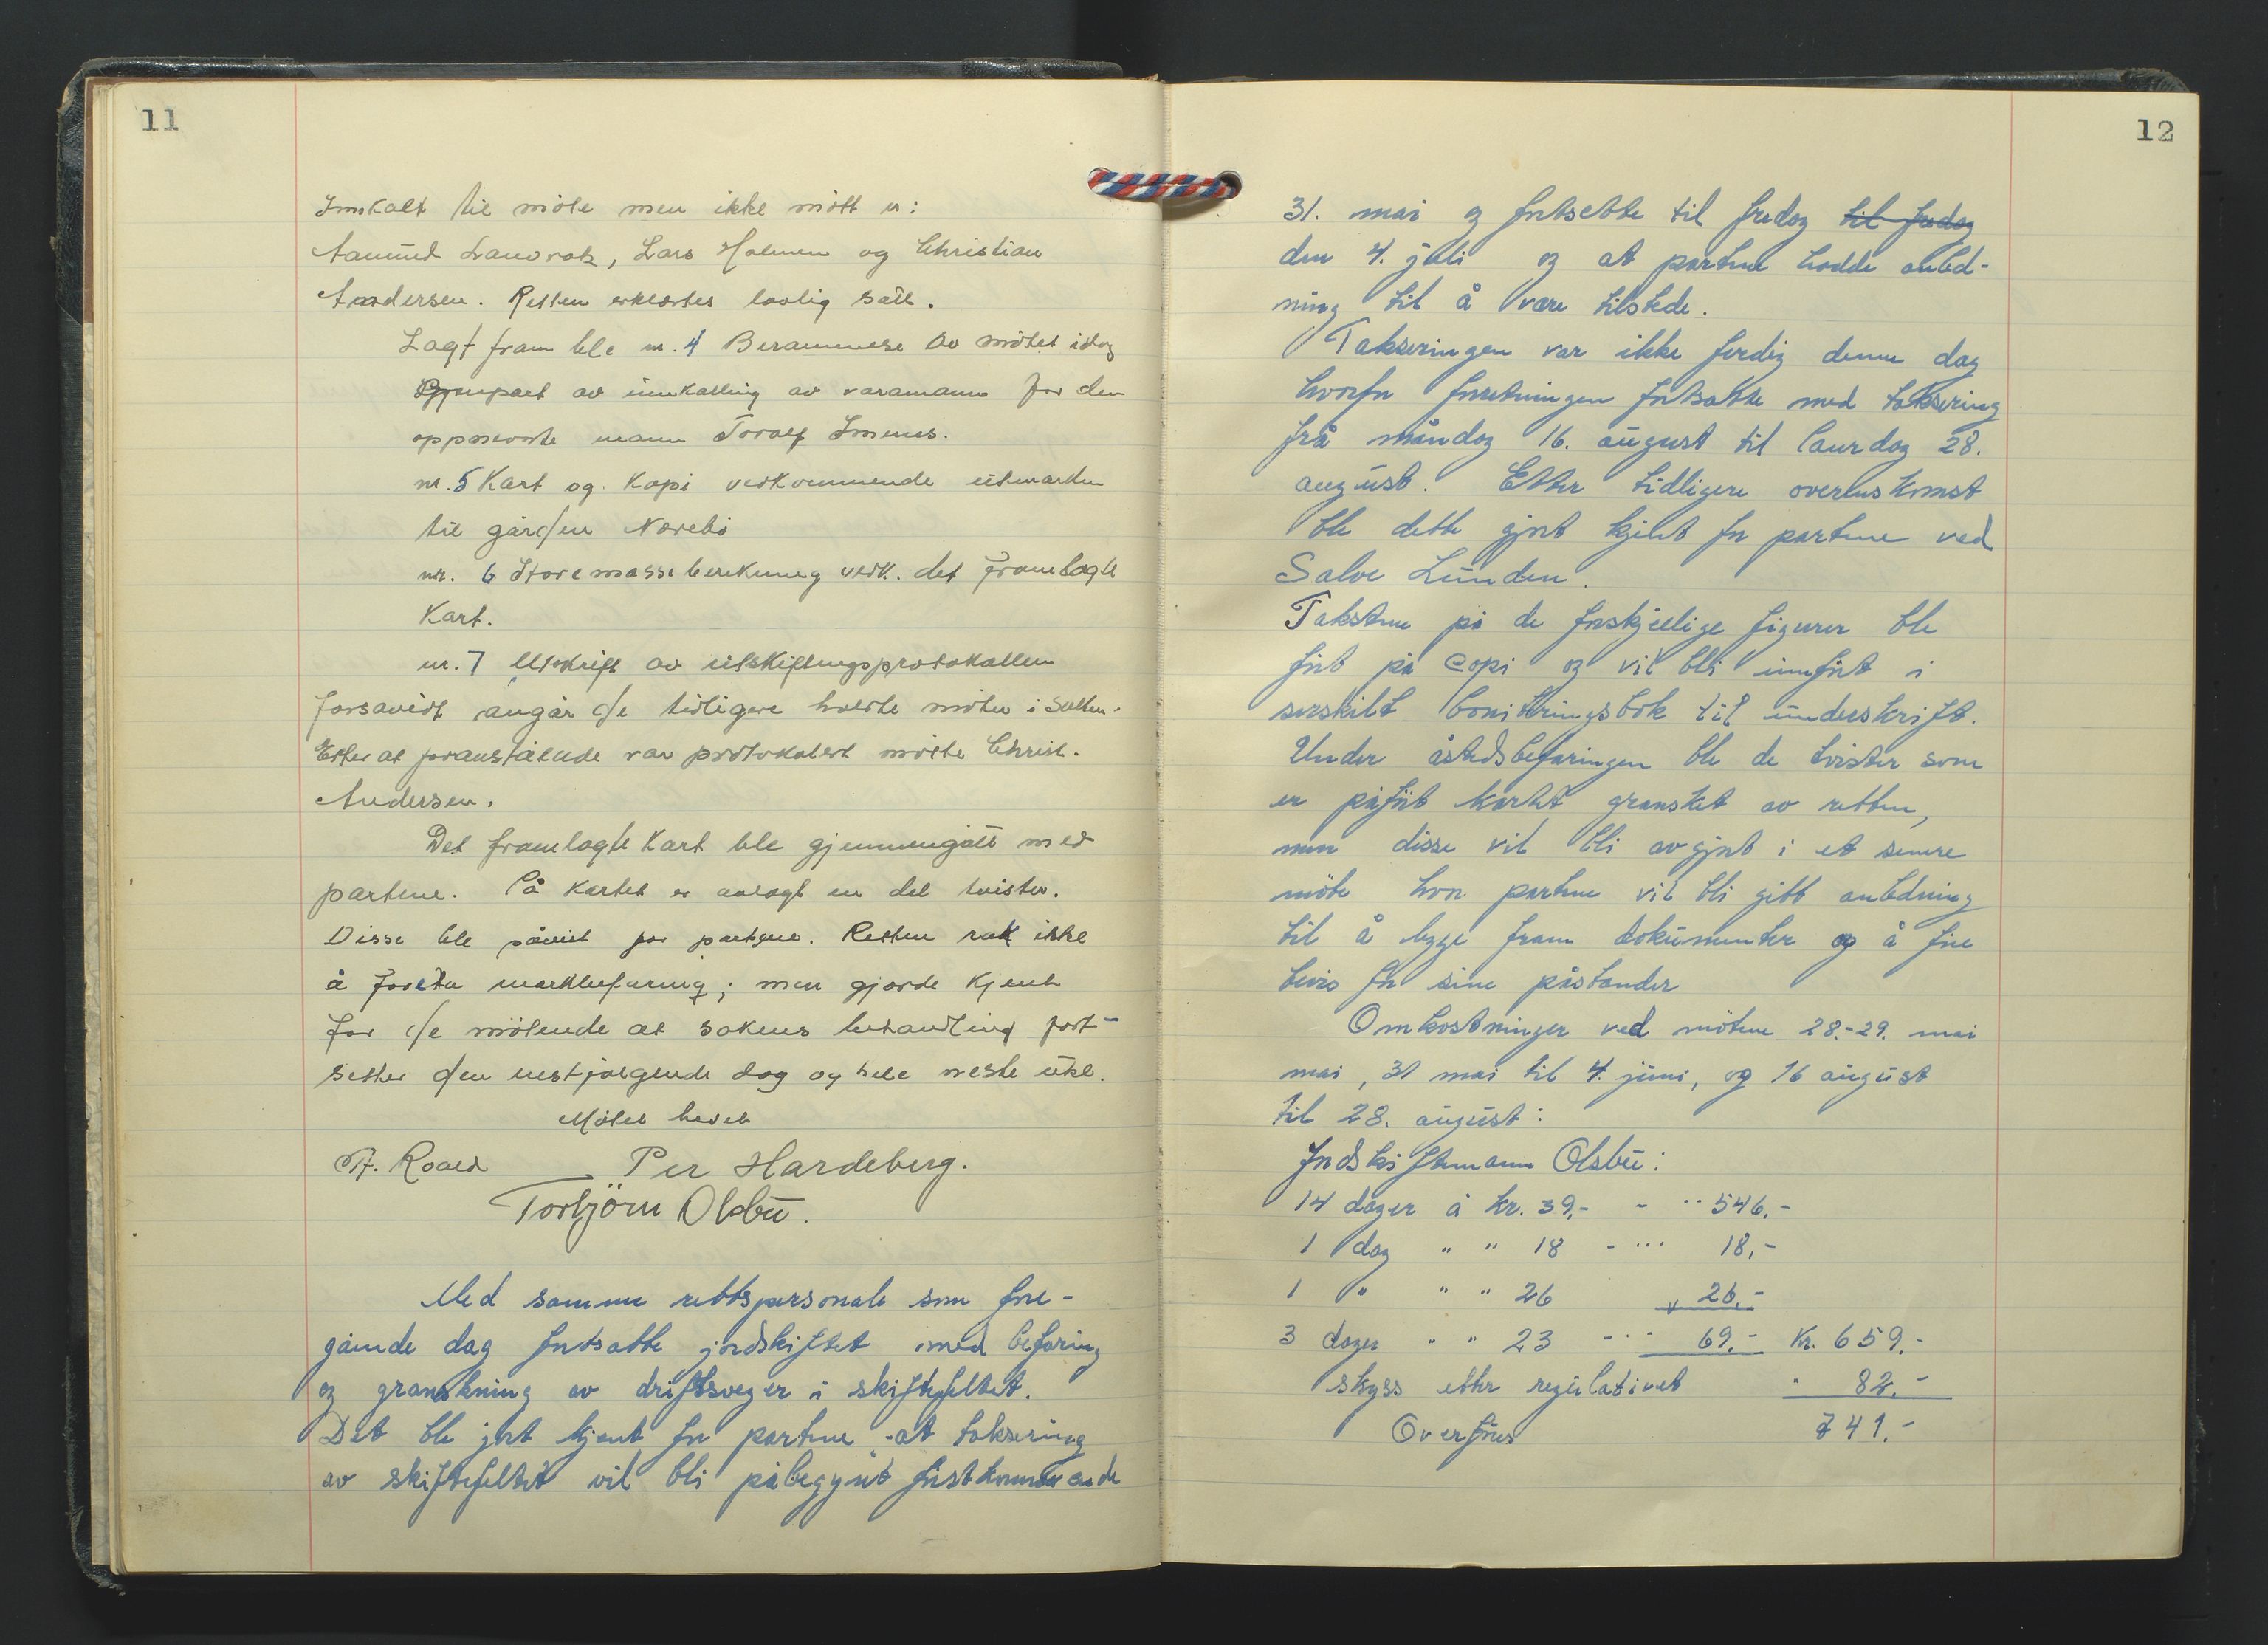 11
Innkalt til møte men ikke møtt er:
Aanund Landvak, Lars Holmen og Christian
Andersen. Retten erklærtes lovlig satt.
Lagt fram ble nr. 4 Berammelse av møtet idag
Gjenpart av innkalling av varamann for den
oppnevnte mann Toralf Imenes.
nr. 5 Kart og Kopi vedkommende utmarken
til gården Nærebø
nr. 6 Store massi berekning vedk. det framlagte
Kart.
nr. 7 Utskrift av utskiftningsprotokollen
forsavidt angår de tidligere holdte møter i saken.
Etter at foranstående var protokolert møtte Christ.
Andersen.
Det framlagte Kart ble gjennemgått med
partene. På Kartet er avlagt en del tvister.
Disse ble påvist for partene. Retten rak ikke
å foreta markbefaring; men gjorde kjent
for de møtende at sakens behandling fort-
setter den nestfølgende dag og hele neste uke.
Møtet hevet
A. Roald Per Hardeberg.
Torbjörn Olsbu.
Med samme rettspersonale som fore-
gående dag fortsatte jordskiftet med befaring
og granskning av driftsveger i skiftefeltet.
Det ble gjort kjent for partene at taksering
av skiftefeltet vil bli påbegynt førstkommende
12
31. mai og fortsette til fredag til fredag
den 4. juli og at partene hadde anled-
ning til å være tilstede.
Takseringen var ikke ferdig denne dag
hvorfor forretningen fortsatte med taksering
frå måndag 16. august til laurdag 28.
august. Etter tidligere overenskomst
ble dette gjort kjent for partene ved
Salve Lunden.
Takstene på de forskjellige figurer ble
ført på copi og vil bli innført i
serskilt boniteringsbok til underskrift.
Under åstedsbefaringen ble de tvister som
er påført kartet gransket av retten,
men disse vil bli avgjort i et senere
møte hvor partene vil bli gitt anledning
til å legge fram dokumenter og å føre
bevis for sine påstander
Omkostninger ved møtene 28.-29. mai
mai, 31 mai til 4. juni, og 16 august
til 28. august:
Jordskiftemann Olsbu:
14 dager á kr. 39,- - " 546,-
1 dag " " 18 - " 18,-
1 " " " 26 " 26,-
3 dager " " 23 - " 69,- Kr. 659,-
Skyss etter regulativet " 82,-
Overføres 741,-